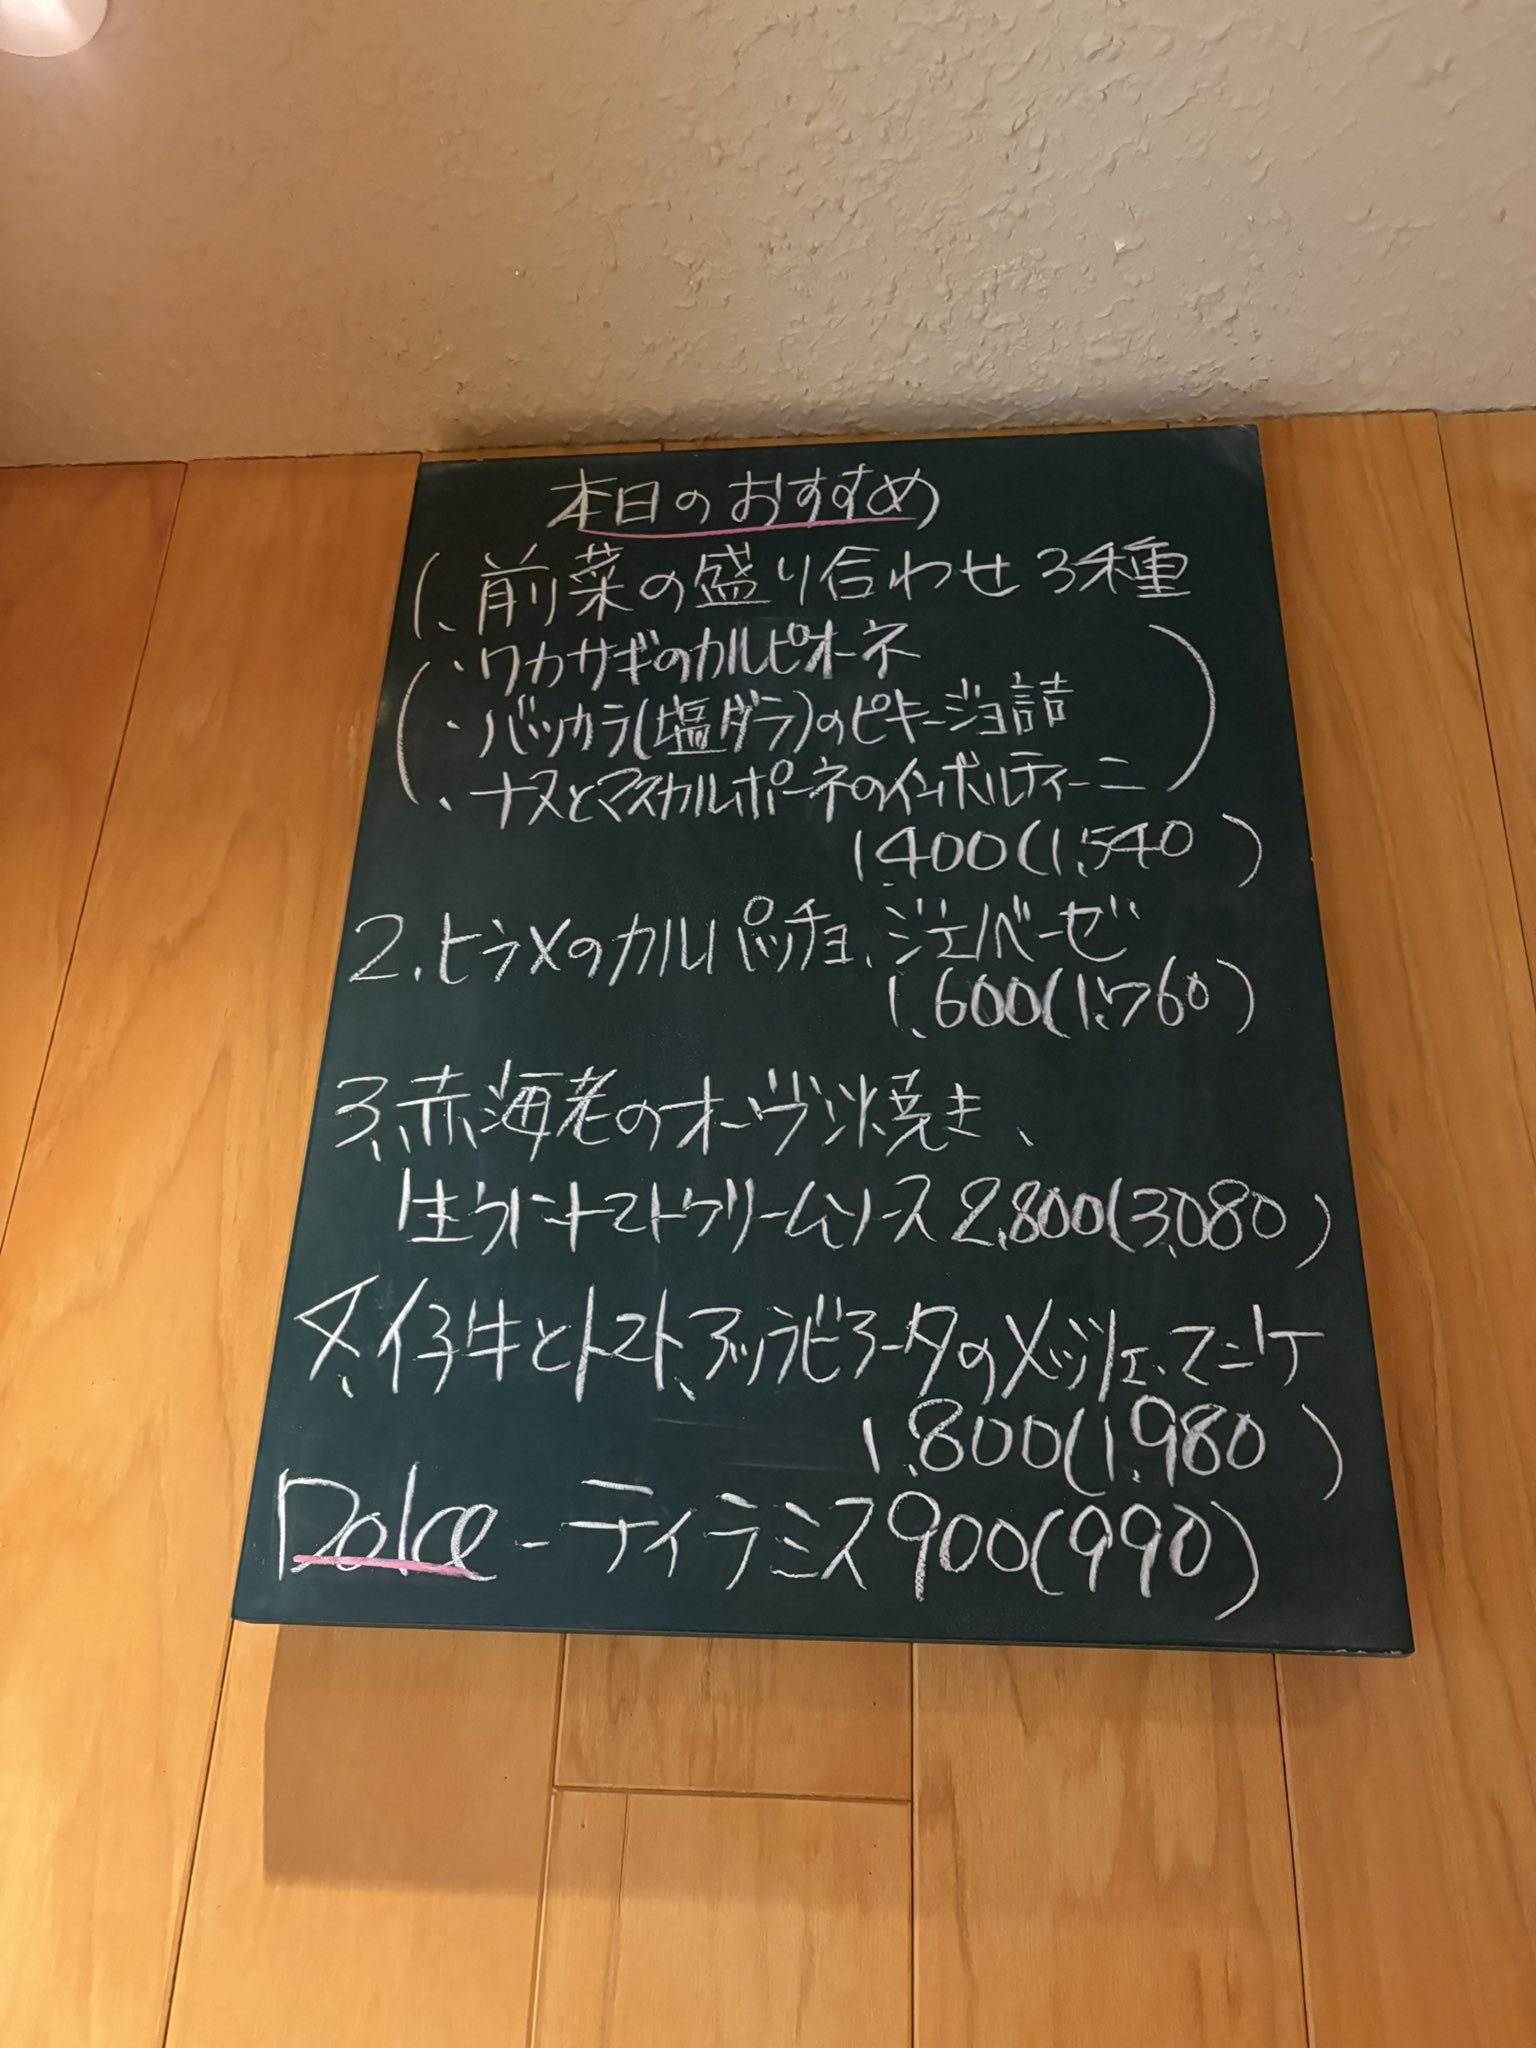 本日のおすすめ
1、前菜の盛り合わせ3種
・ワカサギのカルピオーネ
・バッカラ(塩ダラ)のピキージョ詰
・ナスとマスカルポーネのインボルティーニ
1,400(1,540)
2、ヒラメのカルパッチョ、ジェノベーゼ
1,600(1,760)
3、赤海老のオーヴン焼き、
生ウニトマトクリームソース 2,800(3,080)
4、仔牛とトマト、アッラビアータのメッツェ、マニケ
1,800(1,980)
Dolce - ティラミス 900(990)